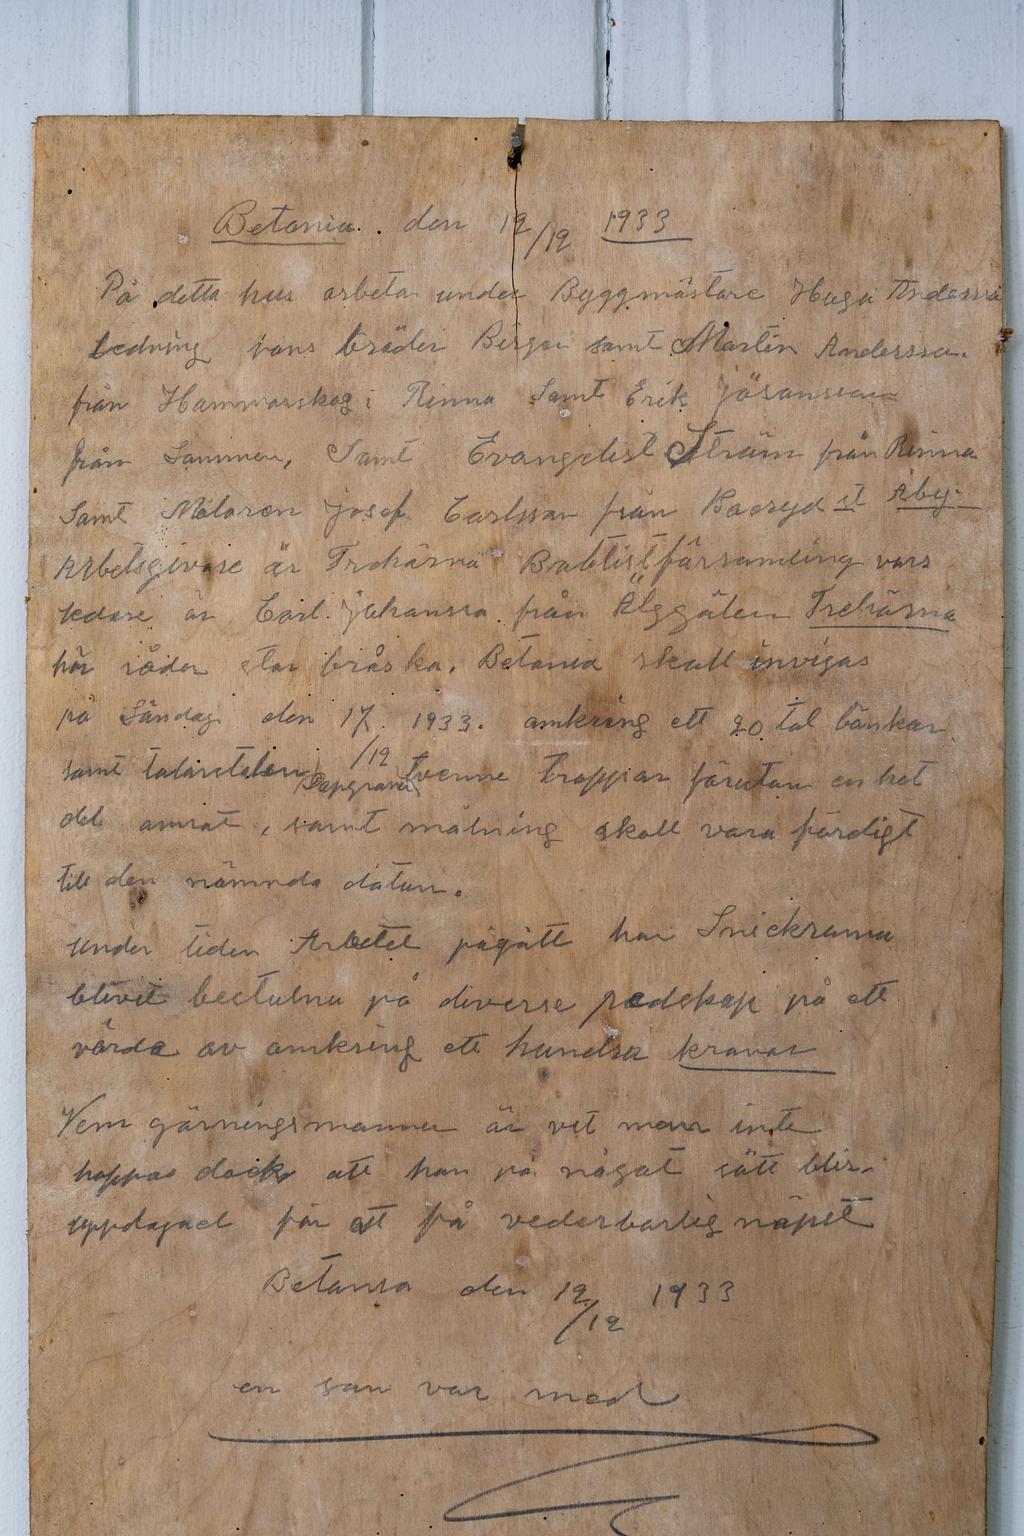 Betania. den 12/12 1933
På detta hus arbeta under Byggmästare Hugo Anderssons
ledning hans bröder Birger samt Martin Andersson.
från Hammarskog i Rinna Samt Erik Jösansson
från Sommen, Samt Evangelist Ström från Rinna
Samt Målaren Josef Carlsson från Boaryd st Aby.
Arbetsgivare är Trehörna Babtistförsamling vars
ledare är Carl Johansson från Älggölen Trehörna
här råder stor bråska. Betania skall invigas
på Söndag den 17/12 1933. omkring ett 20 tal bänkar
samt talarstolen Dopgraven tvenne trappor förutom en hel
del annat, samt målning skall vara färdigt
till den nämnda datun.
Under tiden Arbetet pågått har Snickrarna
blivit bestulna på diverse redskap på ett
värde av omkring ett hundra kronor
Vem gärningsmannen är vet man inte
hoppas dock att han på något sätt blir
uppdagad för att få vederbörlig näpst
Betania den 12/12 1933
en som var med